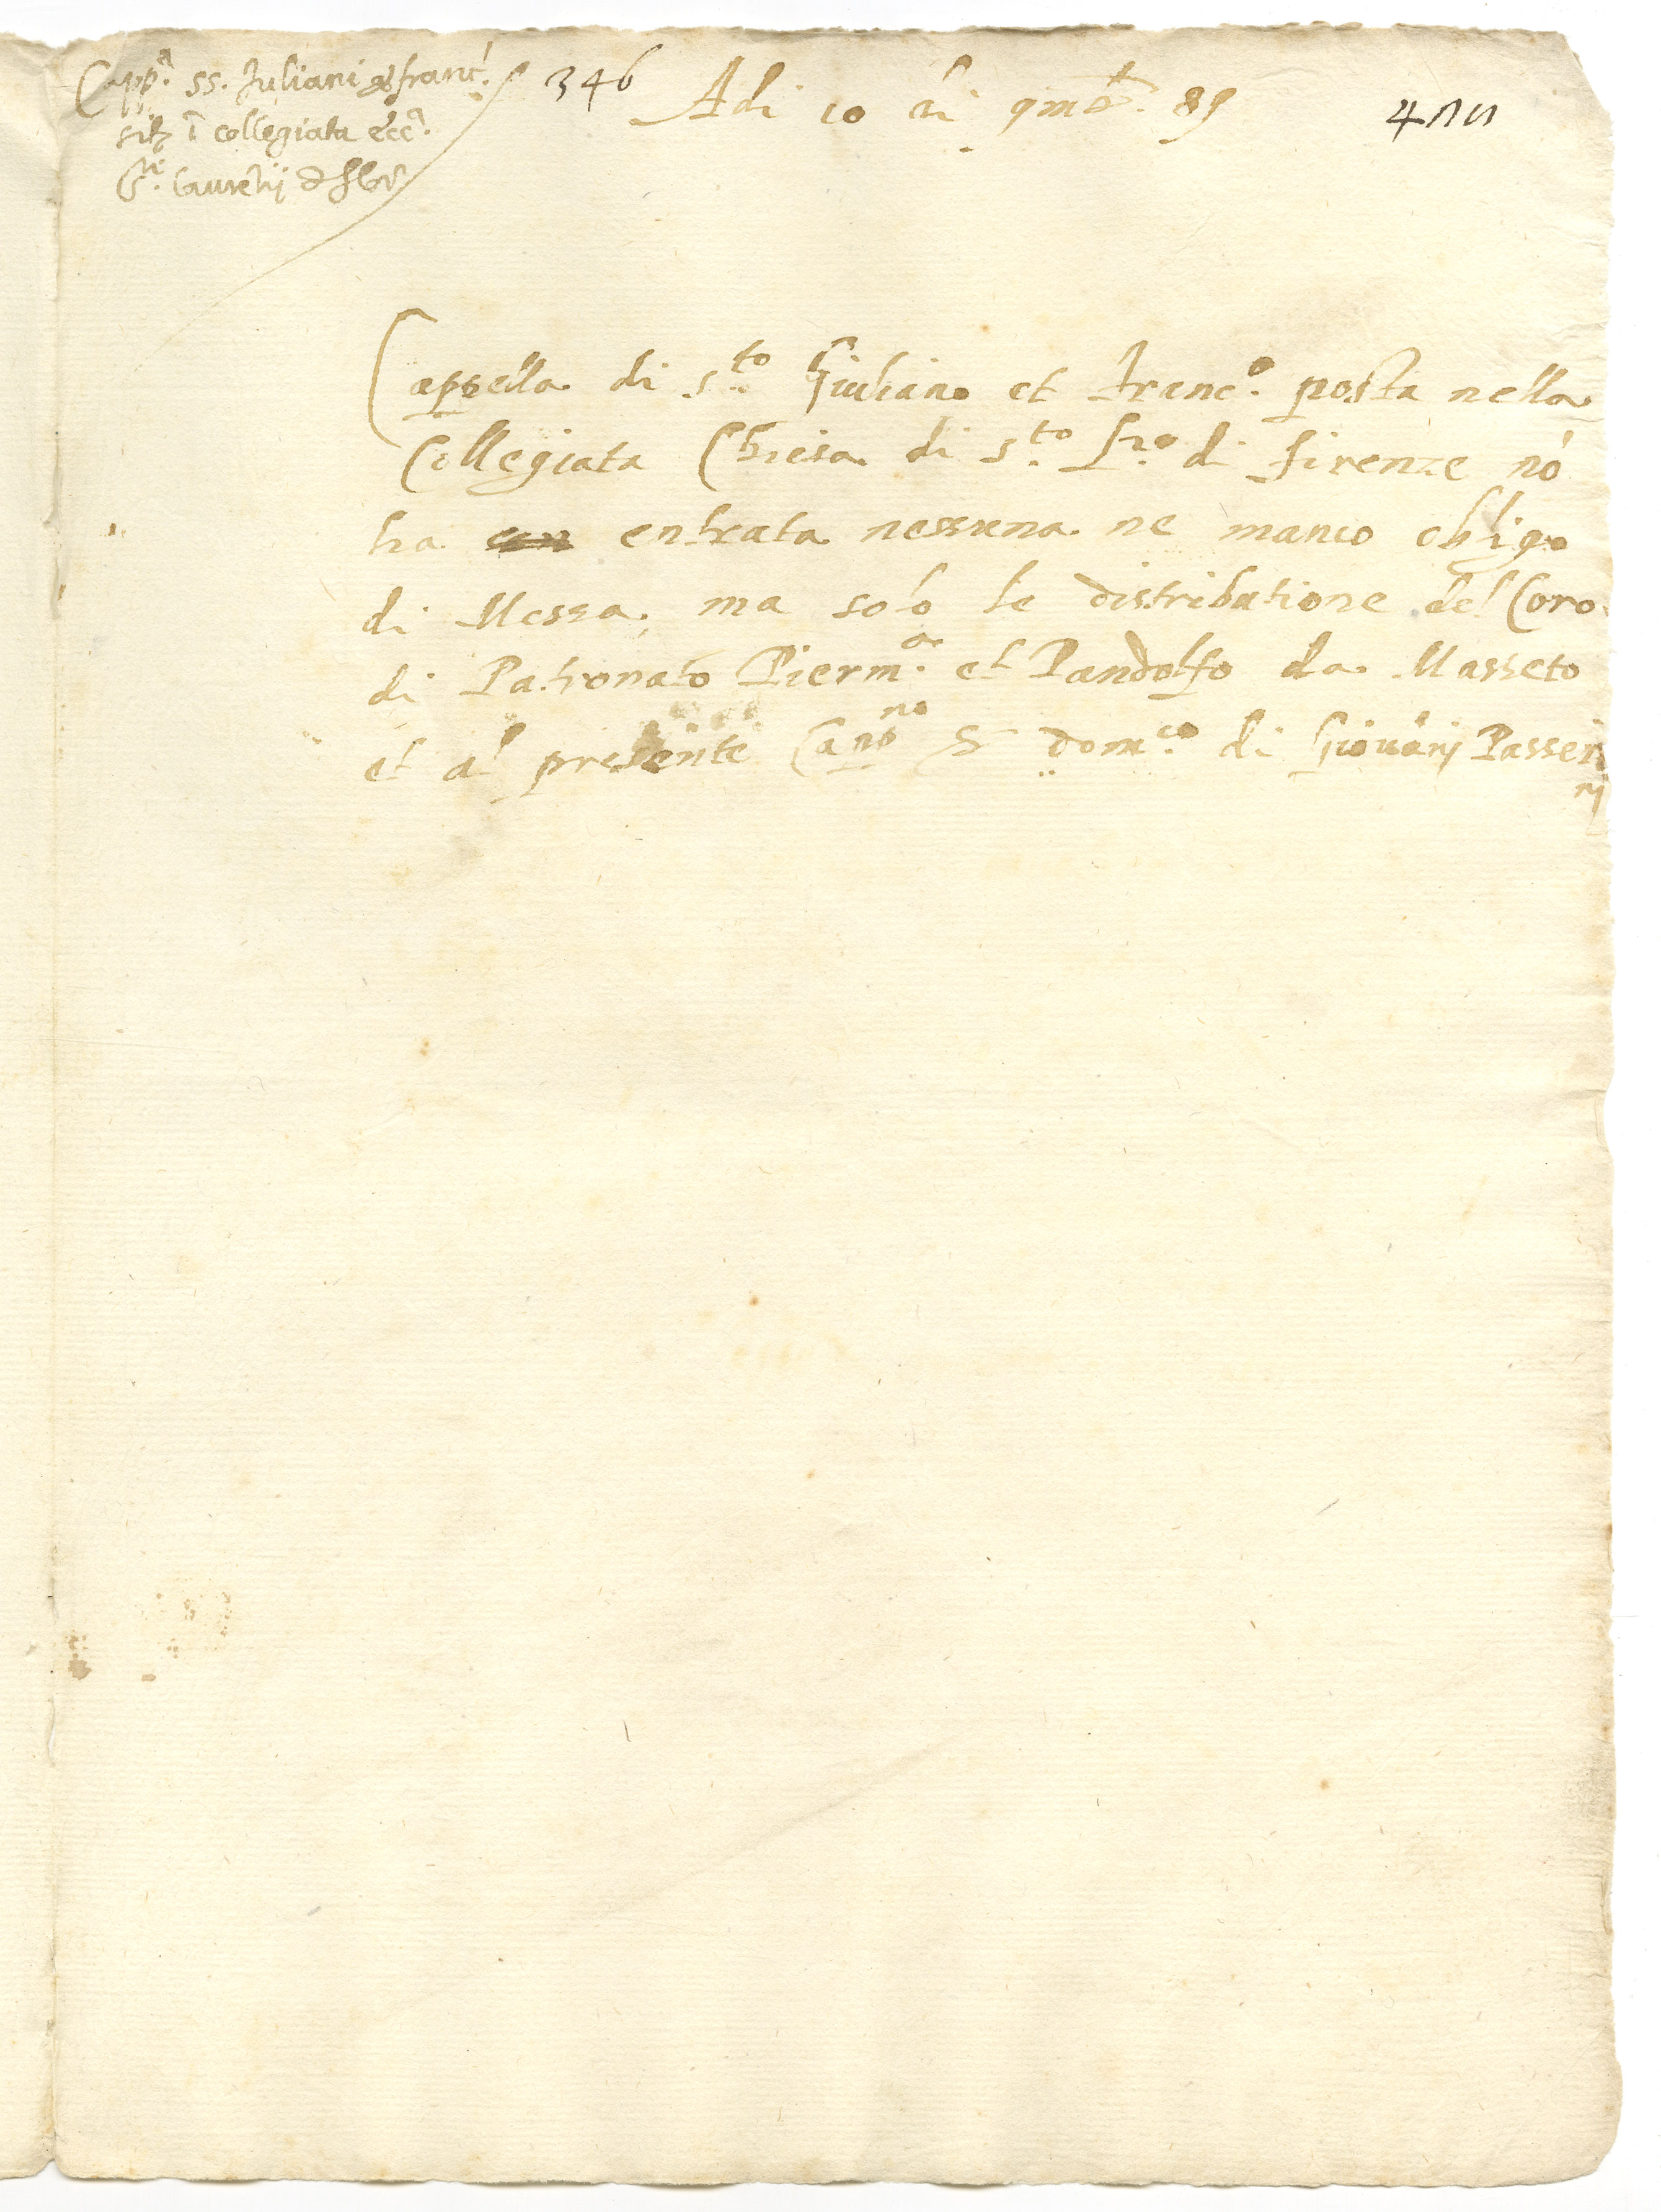 Capp.ª ss. Juliani & franc.
sit; ī collegiata ecc.ª
S.ti Laurētij
346
Adi 10 di 9mb. 89
Cappella di s.to Giuliano et Franc.º posta nella
Collegiata Chiesa di s.to Lzo di firenze nō
ha entrata nessuna ne manco obligo
di Messa, ma solo le distributione del Coro
di Patronato Pierm.a et Pandolfo da Masseto
et al presente Cano.no Sr dom.co di Giovānj Passeri
nj